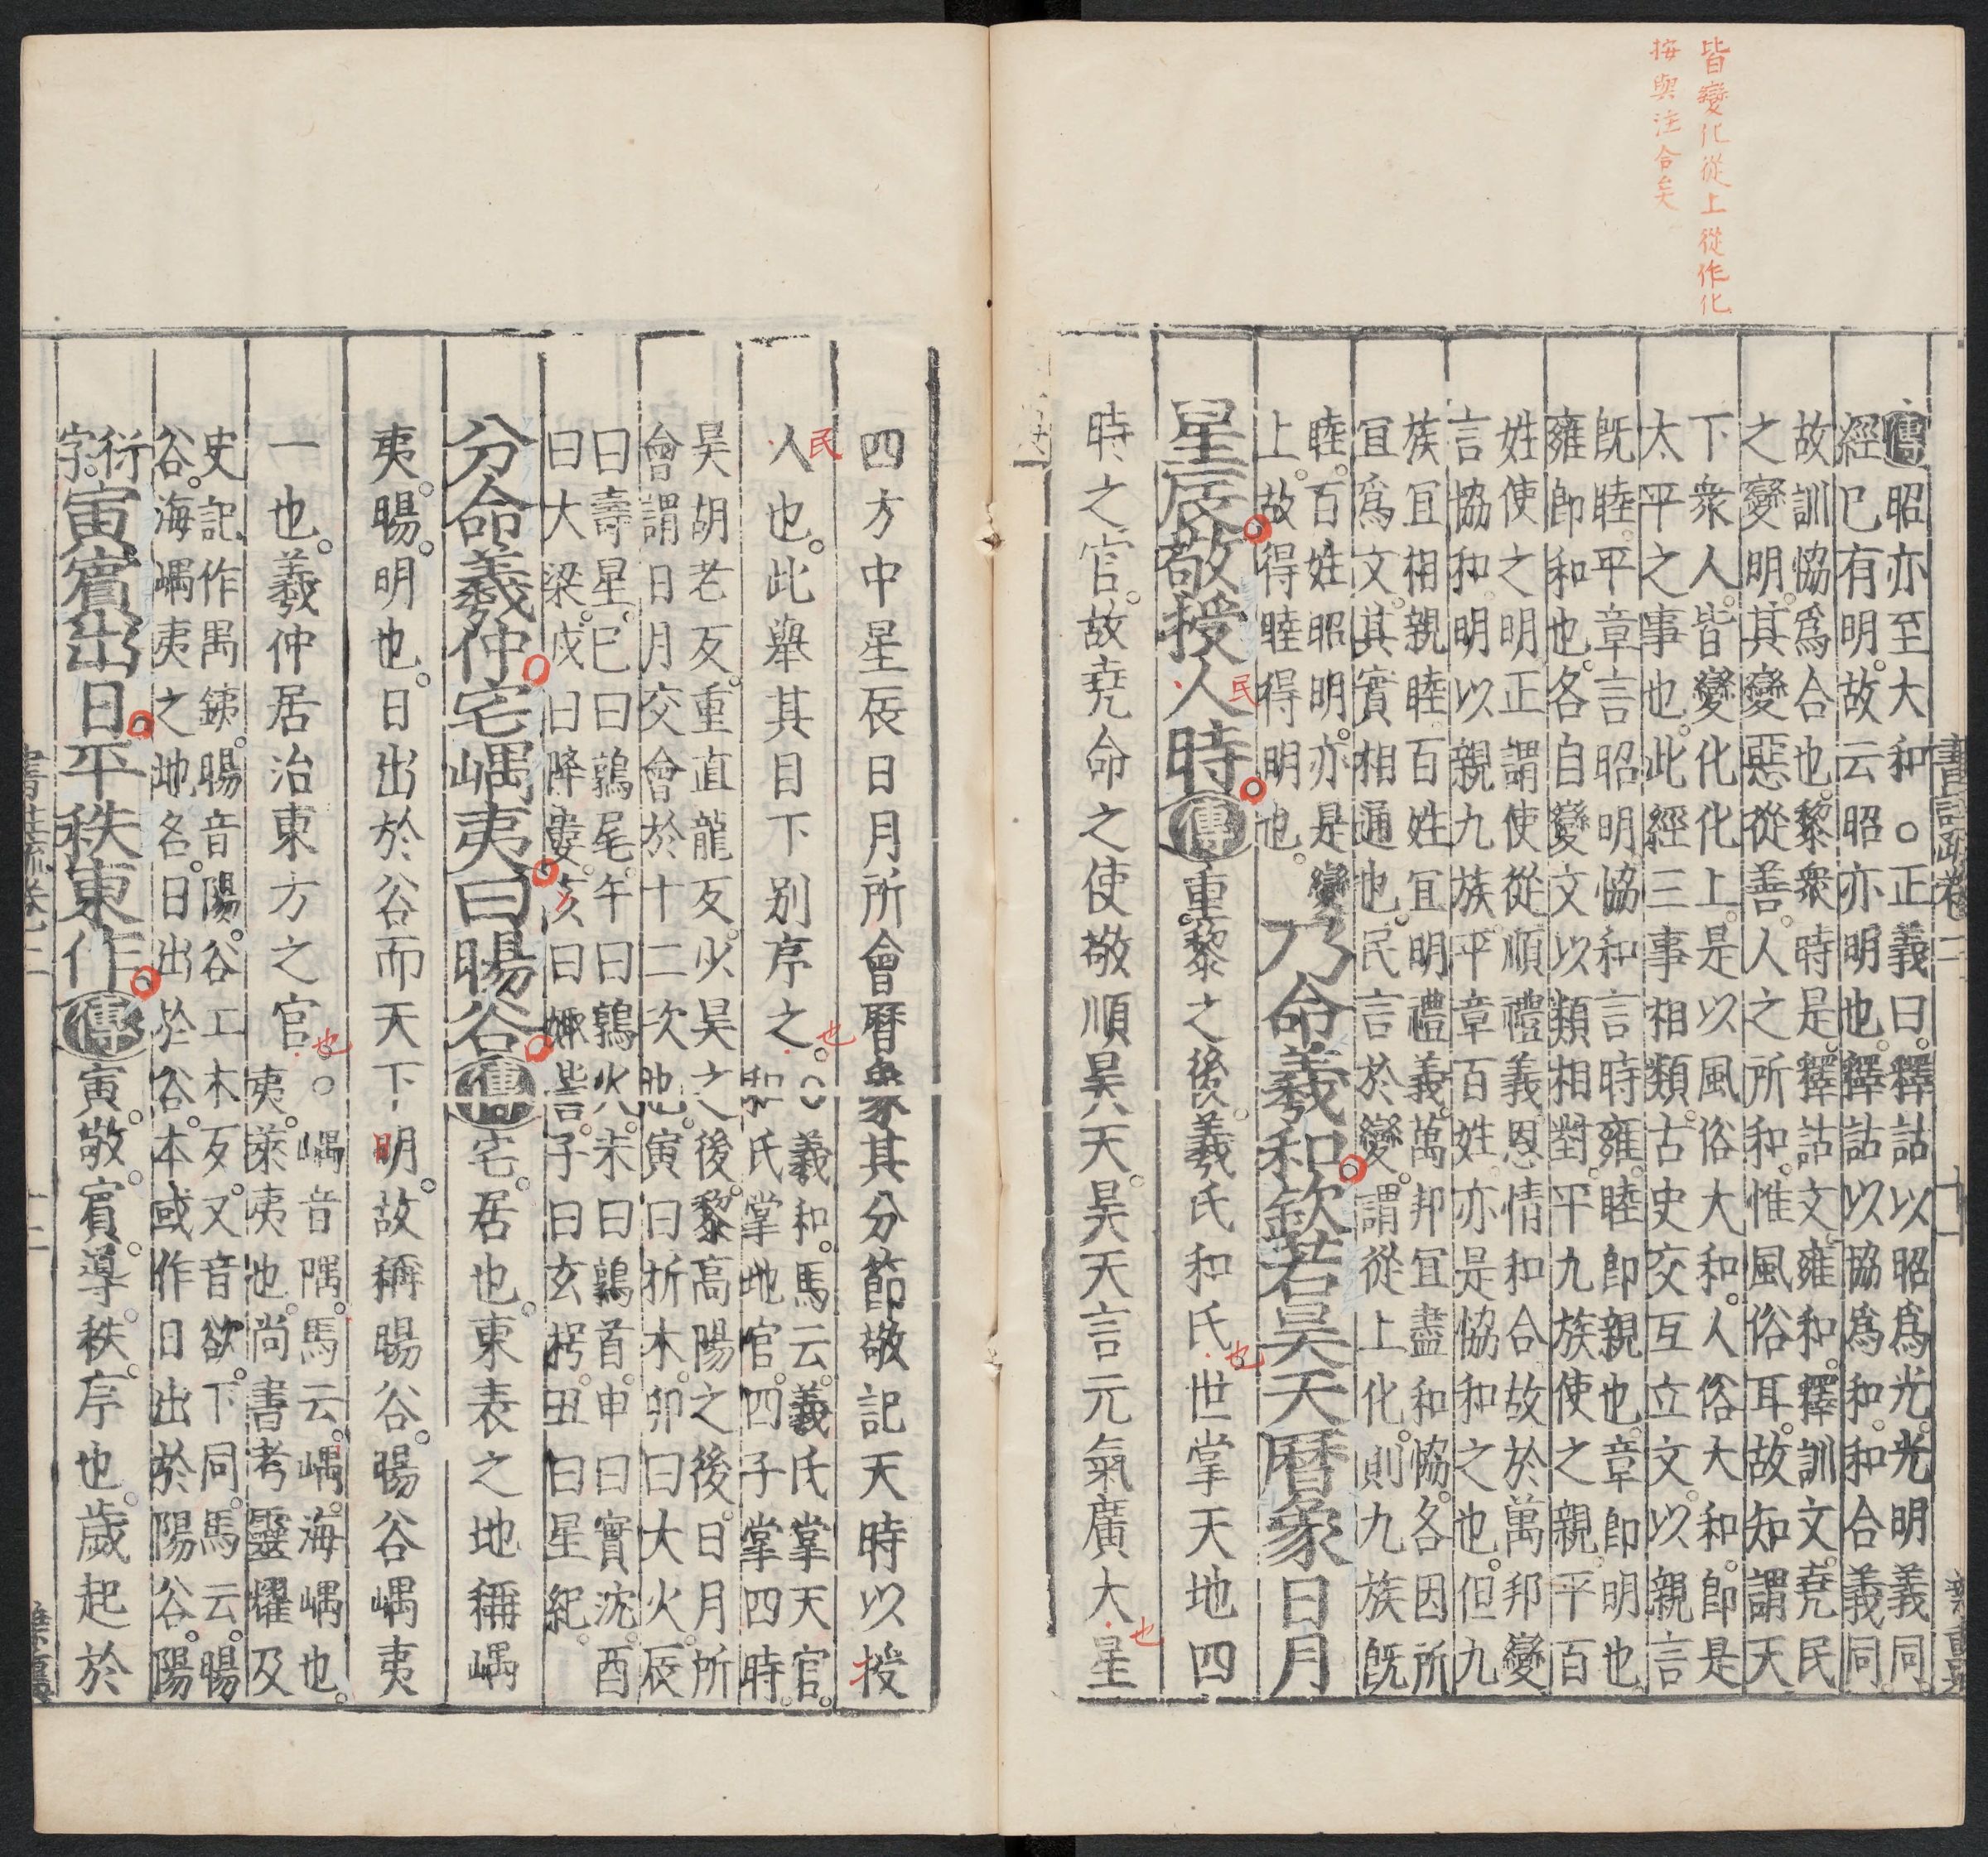 皆變化從上從作化
按與注合矣
傳昭亦至大和○正義曰釋詁以昭爲光光明義同
經已有明故云昭亦明也釋詁以協爲和和合義同
故訓恊爲合也黎衆時是釋詁文雍和釋訓文堯民
之變明其變惡從善人之所和惟風俗耳故知謂天
下衆人皆變化化上是以風俗大和人俗大和即是
太平之事也此經三事相類古史交互立文以親言
既睦平章言昭明恊和言時雍睦即親也章即明也
雍即和也各自變文以類相對平九族使之親平百
姓使之明正謂使從順禮義恩情和合故於萬邦變
言協和明以親九族平章百姓亦是恊和之也但九
族宜相親睦百姓宜明禮義萬邦宜盡和恊各因所
宜爲文其實相通也民言於變謂從上化則九族既
睦百姓昭明亦是變
上故得睦得明也
乃命羲和欽若昊天曆象日月
星辰敬授人時傳重黎之後羲氏和氏世掌天地四
民
也
時之官故堯命之使敬順昊天昊天言元氣廣大星
也
書註疏卷二
十一
四方中星辰日月所會曆象其分節敬記天時以授
人也此舉其目下别序之○
民
也
羲和馬云羲氏掌天官
和氏掌地官四子掌四時
昊胡老反重直龍反少昊之後黎高陽之後日月所
會謂日月交會於十二次也寅曰析木卯曰大火辰
曰壽星巳曰鶉尾午曰鶉火未曰鶉首申曰實沈酉
曰大梁戌曰降婁亥曰娵訾子曰玄枵丑曰星紀
分命羲仲宅嵎夷曰暘谷傳宅居也東表之地稱嵎
夷暘明也日出於谷而天下明故稱暘谷暘谷嵎夷
一也羲仲居治東方之官○
也
嵎音隅馬云嵎海嵎也
夷萊夷也尚書考靈耀及
史記作禺銕暘音陽谷工木反又音欲下同馬云暘
谷海嵎夷之地名日出於谷本或作日出於陽谷陽
衍
字
寅賓出日平秩東作傳寅敬賓導秩序也歲起於
書註疏卷二
十二